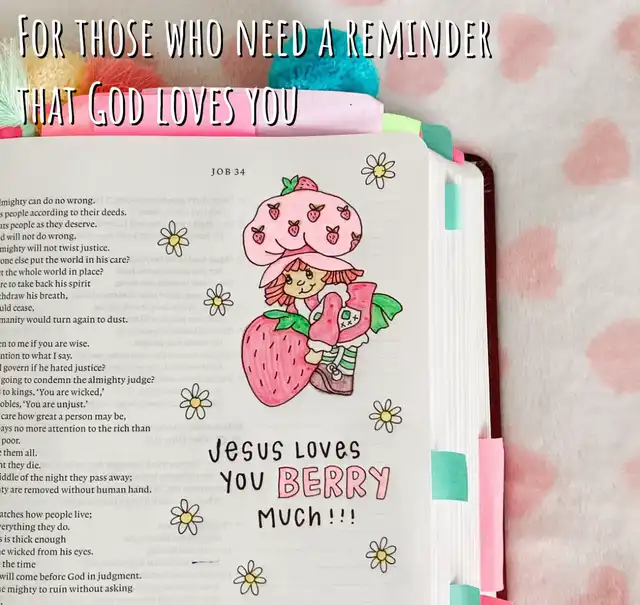 FOR THOSE WHO NEED A REMINDER
THAT GOD LOVES YOU
JOB 34
lmighty can do no wrong.
s people according to their deeds.
urs people as they deserve.
d will not do wrong.
mighty will not twist justice.
one else put the world in his care?
et the whole world in place?
re to take back his spirit
thdraw his breath,
uld cease,
manity would turn again to dust.
en to me if you are wise.
ention to what I say.
l govern if he hated justice?
going to condemn the almighty judge?
to kings, ‘You are wicked,’
obles, ‘You are unjust.’
care how great a person may be,
ays no more attention to the rich than
poor.
e them all.
nt they die.
iddle of the night they pass away;
ty are removed without human hand.
atches how people live;
verything they do.
s is thick enough
e wicked from his eyes.
the time
will come before God in judgment.
e mighty to ruin without asking
JESUS LOVES
YOU BERRY
MUCH!!!